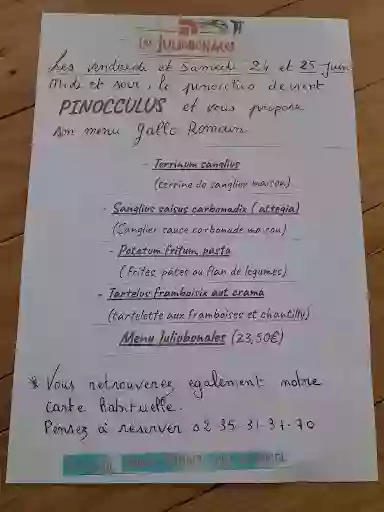 LES JULIOBONALES
Les vendredi et Samedi 24 et 25 Juin
Midi et soir, le pinocchio devient
PINOCCULUS et vous propose
son menu Gallo Romain
- Terrinum sanglius
(terrine de sanglier maison)
- Sanglius salsus carbonadix (attegia)
(Sanglier sauce carbonade maison)
- Potatum fritum, pasta
(Frites, pâtes ou flan de légumes)
- Tartelus framboisix aut crama
(tartelette aux framboises et chantilly)
Menu Juliobonales (23,50€)
* Vous retrouverez egalement notre
carte habituelle.
Pensez à réserver 02 35.31.37.70